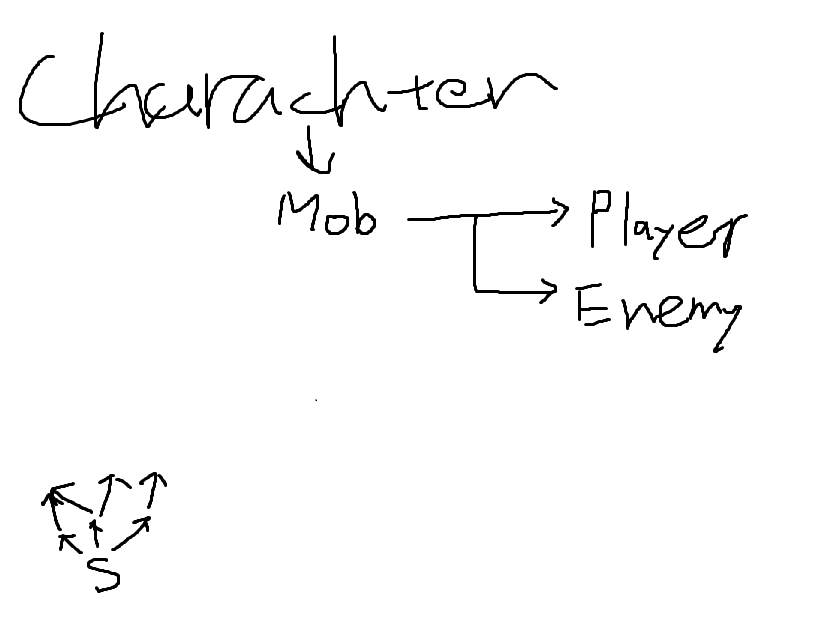 Charachter
Mob
Player
Enemy
S